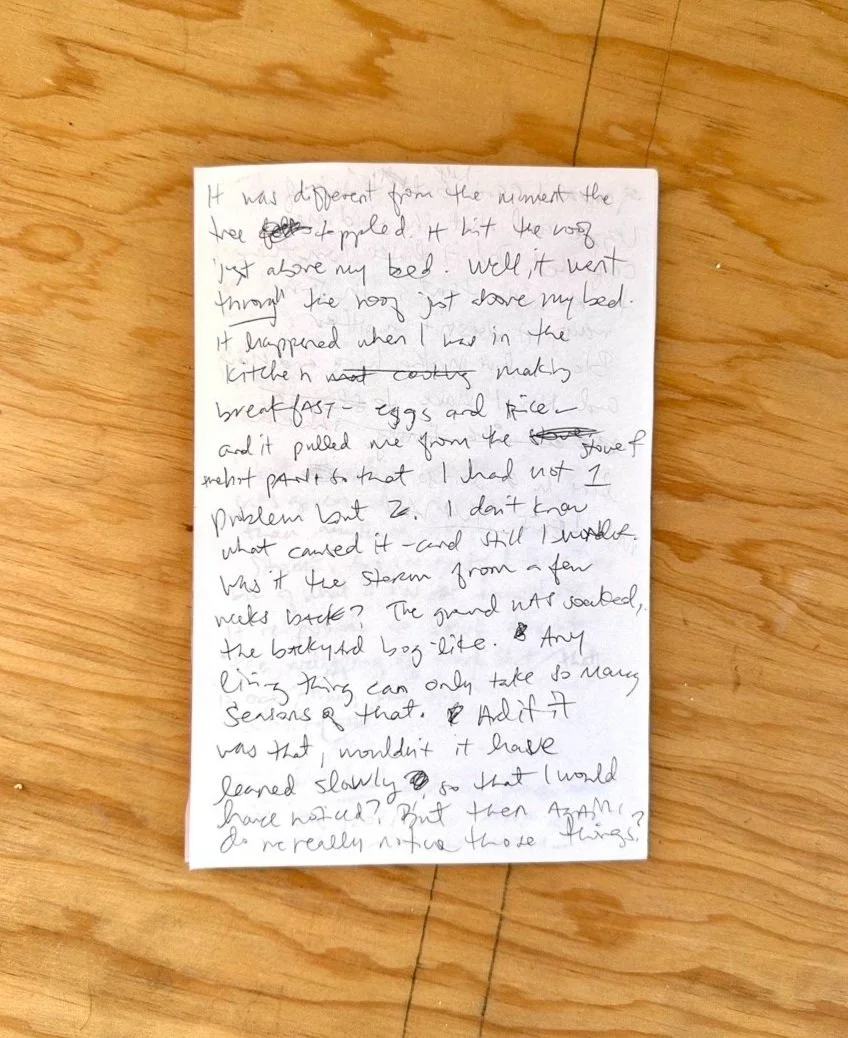 It was different from the moment the
tree toppled. It hit the roof
just above my bed. Well, it went
through the roof just above my bed.
It happened when I was in the
kitchen making
breakfAST - eggs and rice -
and it pulled me from the stove &
hot pAN, so that I had not 1
problem but 2. I don't know
what caused it - and still I wonder.
Was it the storm from a few
weeks bAck? The ground wAS soaked,
the backyard bog-like. Any
living thing can only take so many
seasons of that. And if it
was that, wouldn't it have
leaned slowly, so that I would
have noticed? But then AgAiN,
do we really notice those things?